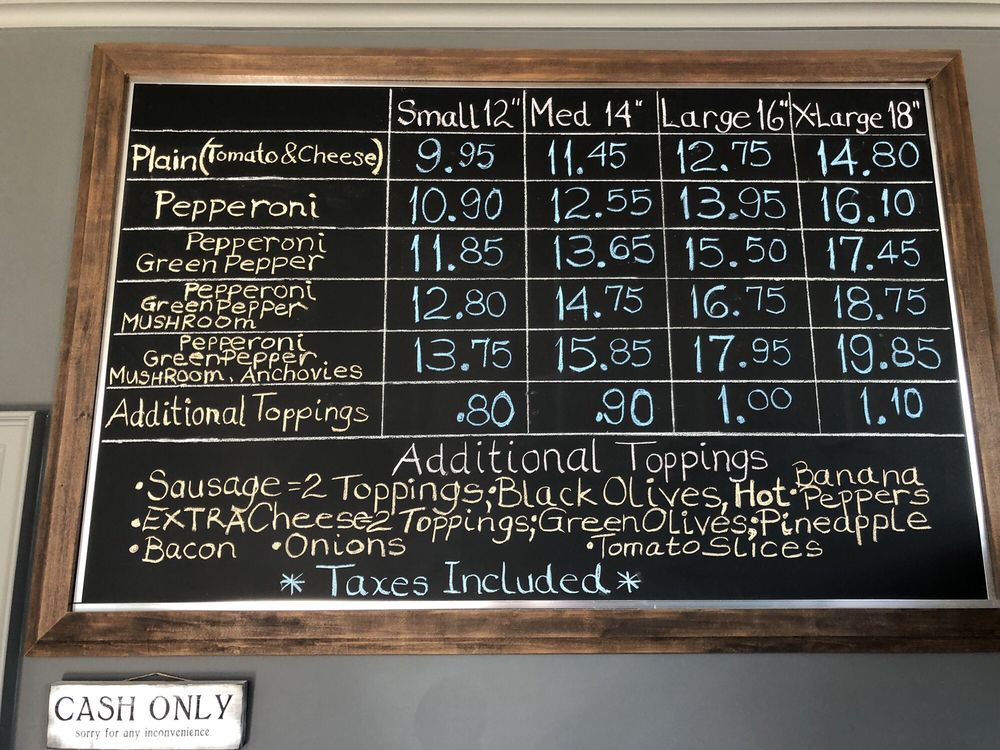 Small 12" Med 14" Large 16" X-Large 18"
Plain (Tomato & Cheese) 9.95 11.45 12.75 14.80
Pepperoni 10.90 12.55 13.95 16.10
Pepperoni
Green Pepper 11.85 13.65 15.50 17.45
Pepperoni
Green Pepper
MUSHROOM 12.80 14.75 16.75 18.75
Pepperoni
Green Pepper
MUSHROOM, Anchovies 13.75 15.85 17.95 19.85
Additional Toppings .80 .90 1.00 1.10
Additional Toppings
•Sausage=2 Toppings; Black Olives, Hot•Banana Peppers
•EXTRA Cheese=2 Toppings; Green Olives; Pineapple
•Bacon •Onions •Tomato Slices
* Taxes Included *
CASH ONLY
sorry for any inconvenience